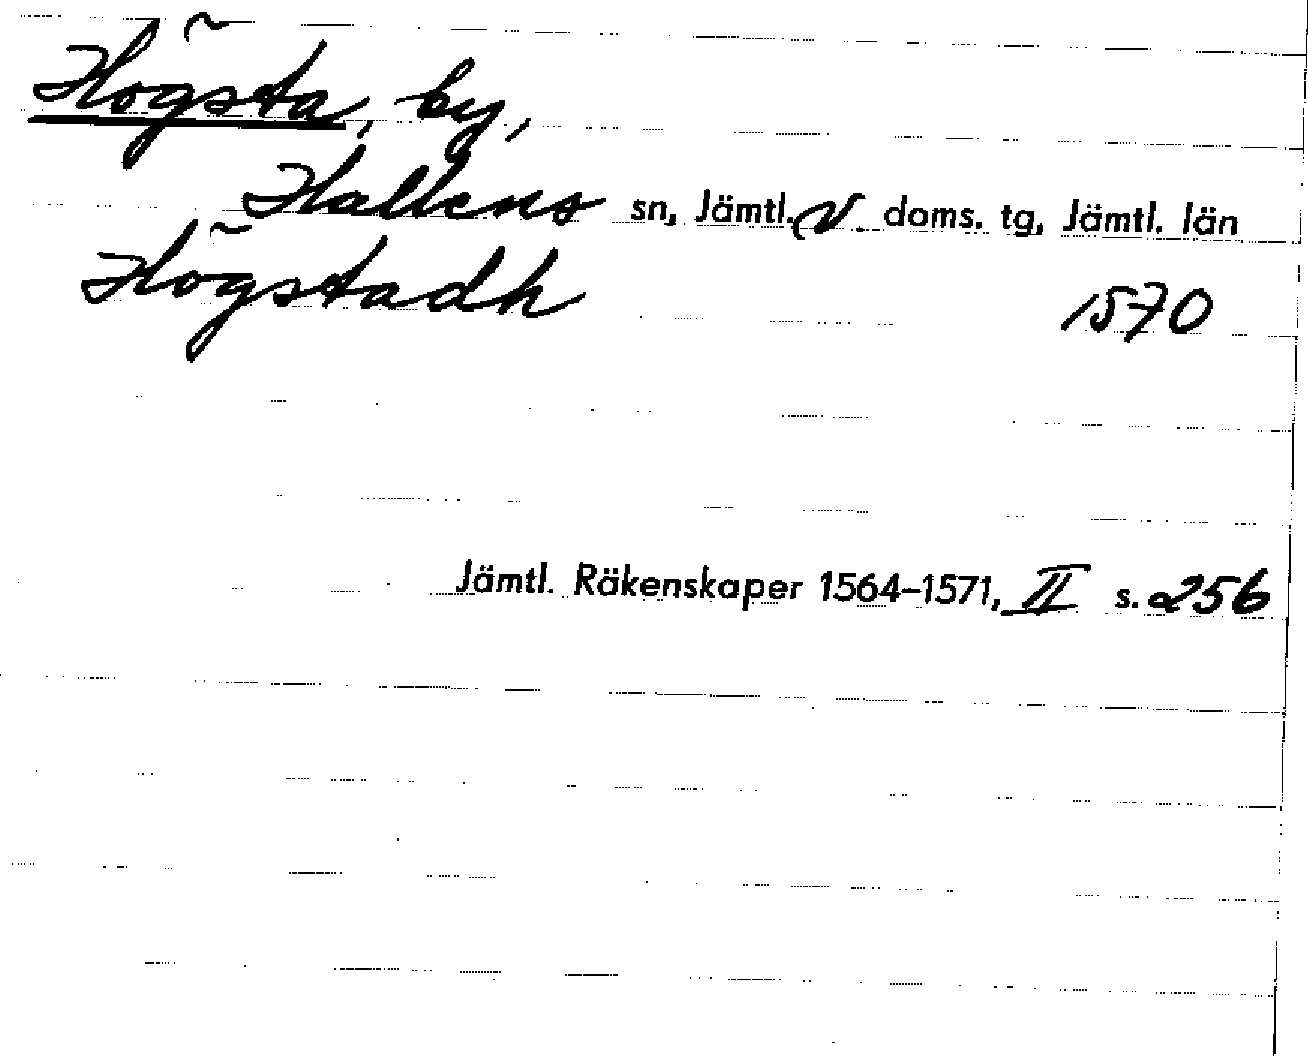 Högsta, by,
Hallens sn, Jämtl. V. doms. tg, Jämtl. län
Högstadh 1570
Jämtl. Räkenskaper 1564–1571, II s. 256